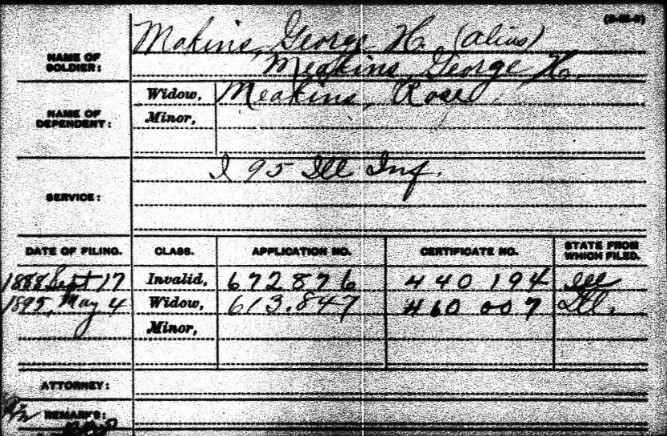 (3-45-3)
NAME OF SOLDIER: Makins, George H. (alias)
Meakins, George H.
NAME OF DEPENDENT: Widow, Meakins, Rose
Minor,
SERVICE: I 95 Ill Inf.
DATE OF FILING. CLASS. APPLICATION NO. CERTIFICATE NO. STATE FROM WHICH FILED.
1888 Sept 17 Invalid, 672876 440194 Ill
1895, May 4 Widow, 613.847 460 007 Ill.
Minor,
ATTORNEY:
REMARKS: